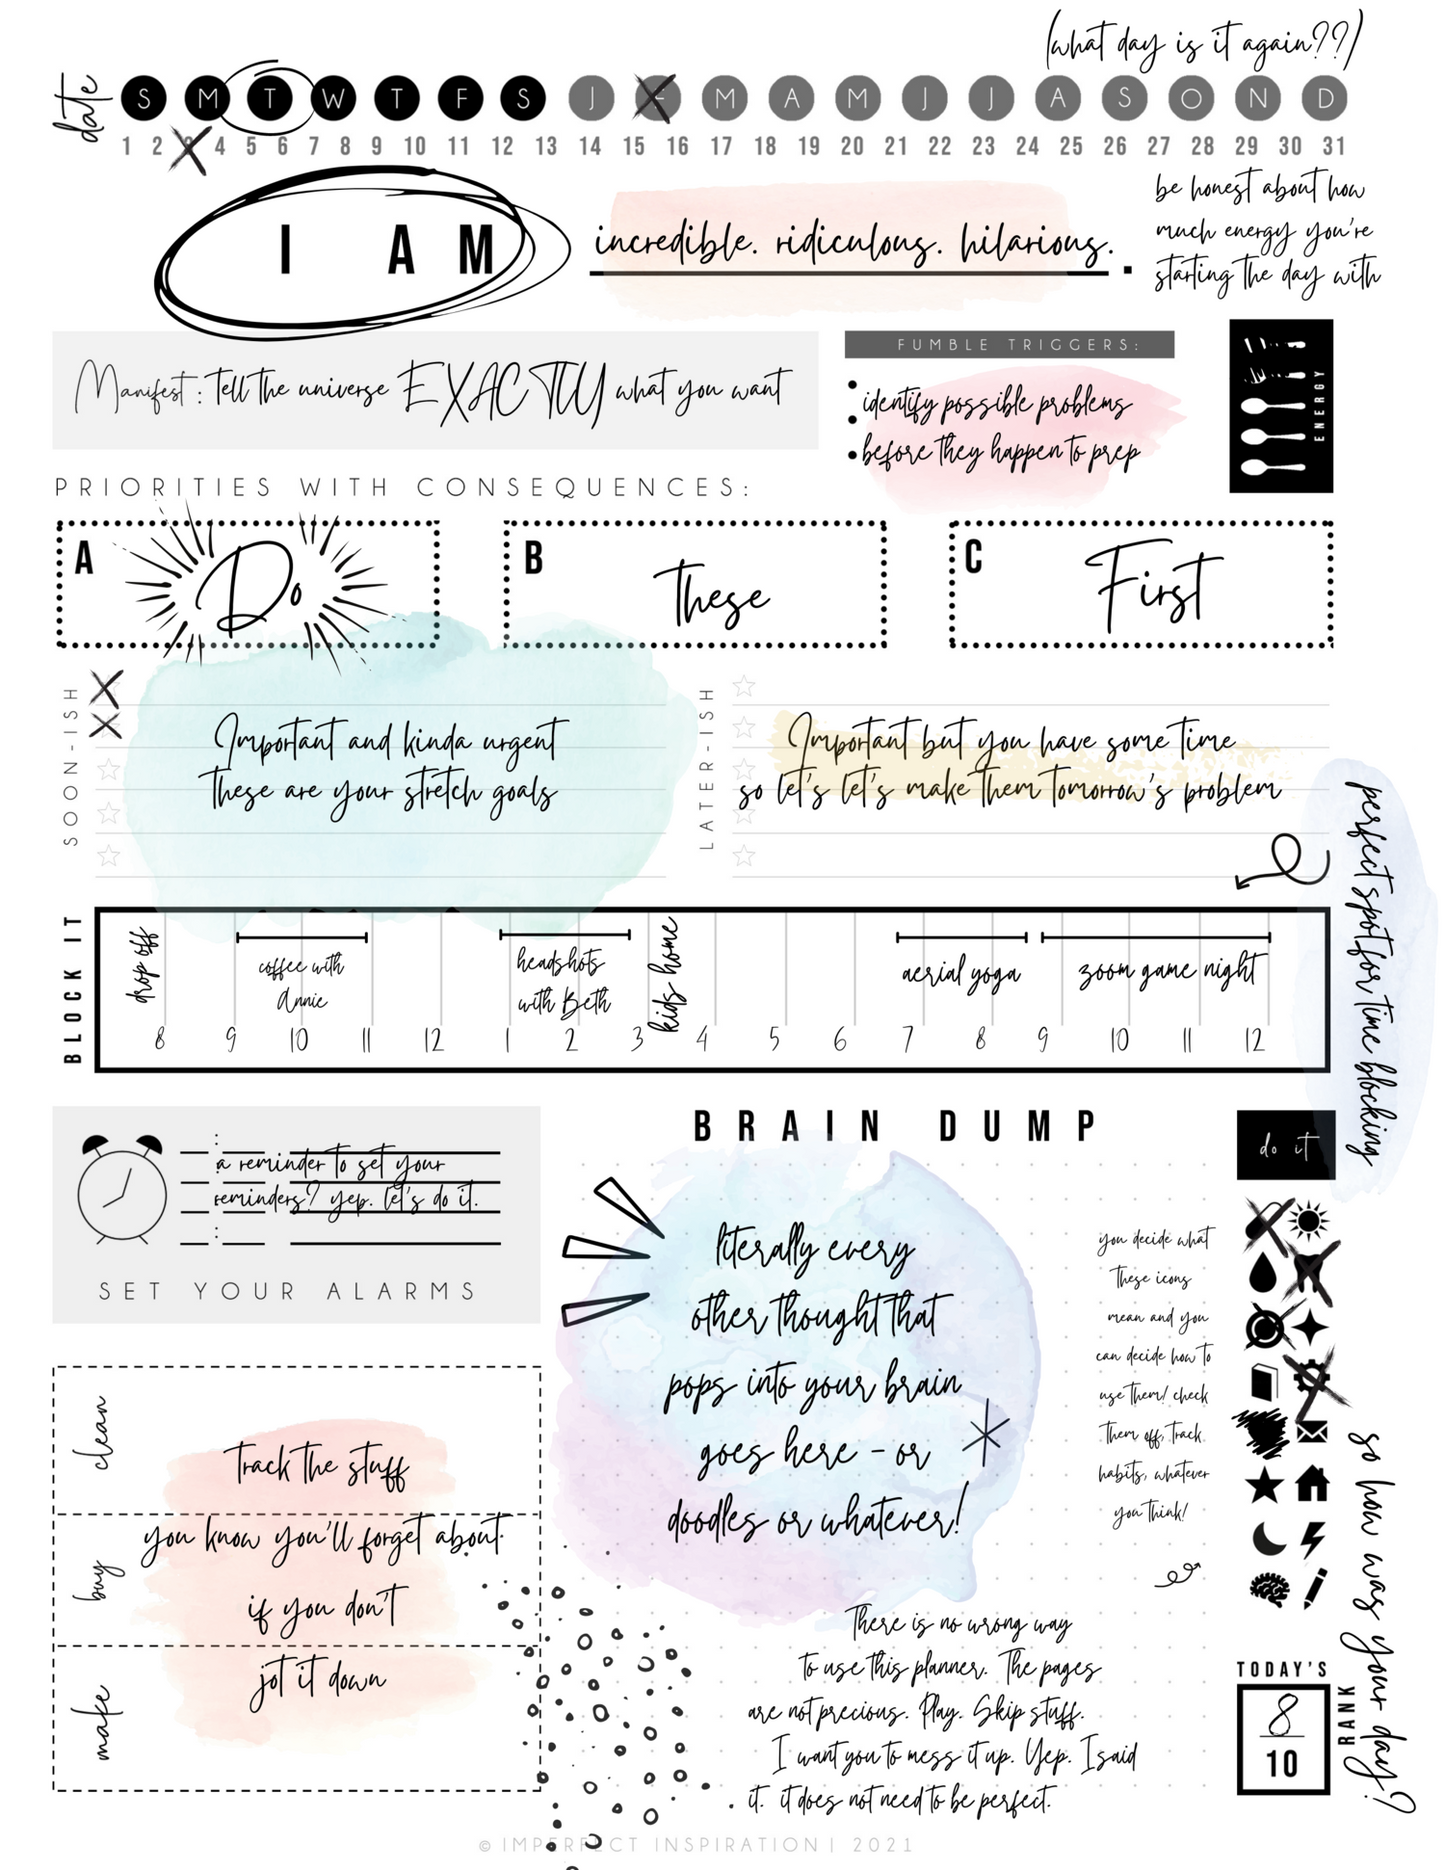 (what day is it again??)
date
S M T W T F S J F M A M J J A S O N D
1 2 3 4 5 6 7 8 9 10 11 12 13 14 15 16 17 18 19 20 21 22 23 24 25 26 27 28 29 30 31
I AM incredible. ridiculous. hilarious. .
be honest about how
much energy you're
starting the day with
Manifest: tell the universe EXACTLY what you want
FUMBLE TRIGGERS:
• identify possible problems
•
• before they happen to prep
ENERGY
PRIORITIES WITH CONSEQUENCES:
A Do
B These
C First
SOON-ISH
Important and kinda urgent
these are your stretch goals
LATER-ISH
Important but you have some time
so let's let's make them tomorrow's problem
perfect spot for time blocking
BLOCK IT
drop off
coffee with
Annie
headshots
with Beth
kids home
aerial yoga
zoom game night
8 9 10 11 12 1 2 3 4 5 6 7 8 9 10 11 12
:
a reminder to set your
reminders? yep. let's do it.
:
SET YOUR ALARMS
BRAIN DUMP
literally every
other thought that
pops into your brain
goes here - or
doodles or whatever!
do it
you decide what
these icons
mean and you
can decide how to
use them! check
them off, track
habits, whatever
you think!
clean
track the stuff
buy
you know you'll forget about
if you don't
make
jot it down
There is no wrong way
to use this planner. The pages
are not precious. Play. Skip stuff.
I want you to mess it up. Yep. I said
it. it does not need to be perfect.
TODAY'S
RANK
8
10
so how was your day?
© IMPERFECT INSPIRATION | 2021